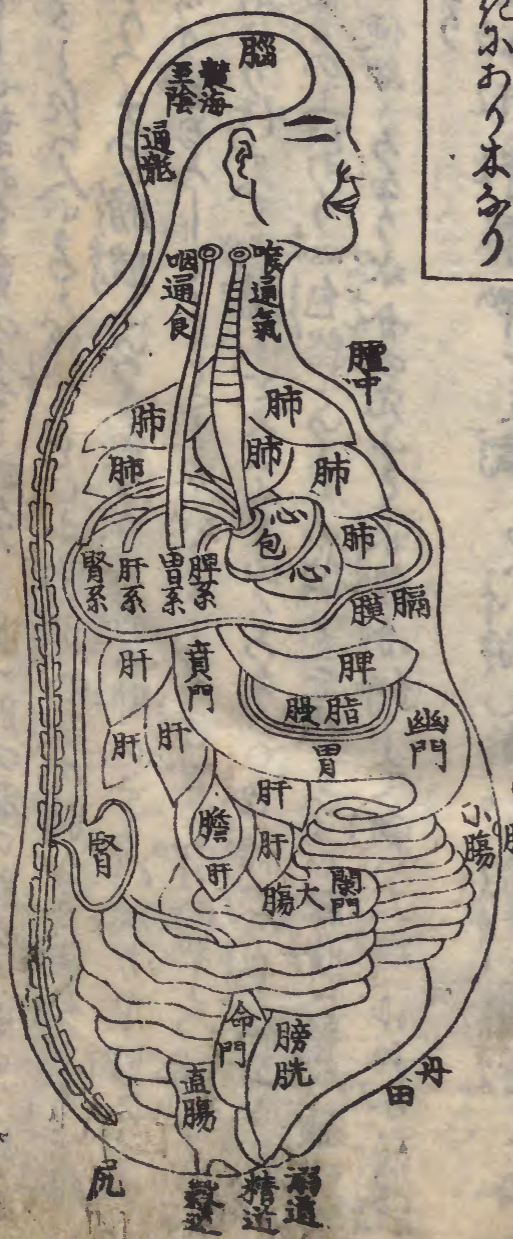 にあり木なり
腦
髓海
至陰
通髓
喉通氣
咽通食
膻中
肺
肺
肺
肺
肺
肺
心包
心
腎系
肝系
胃系
脾系
膈膜
肝
賁門
脾
脂幔
胃
幽門
肝
肝
肝
膽
肝
肝
腎
小腸
大腸
闌門
命門
膀胱
直腸
丹田
尻
穀道
精道
溺道